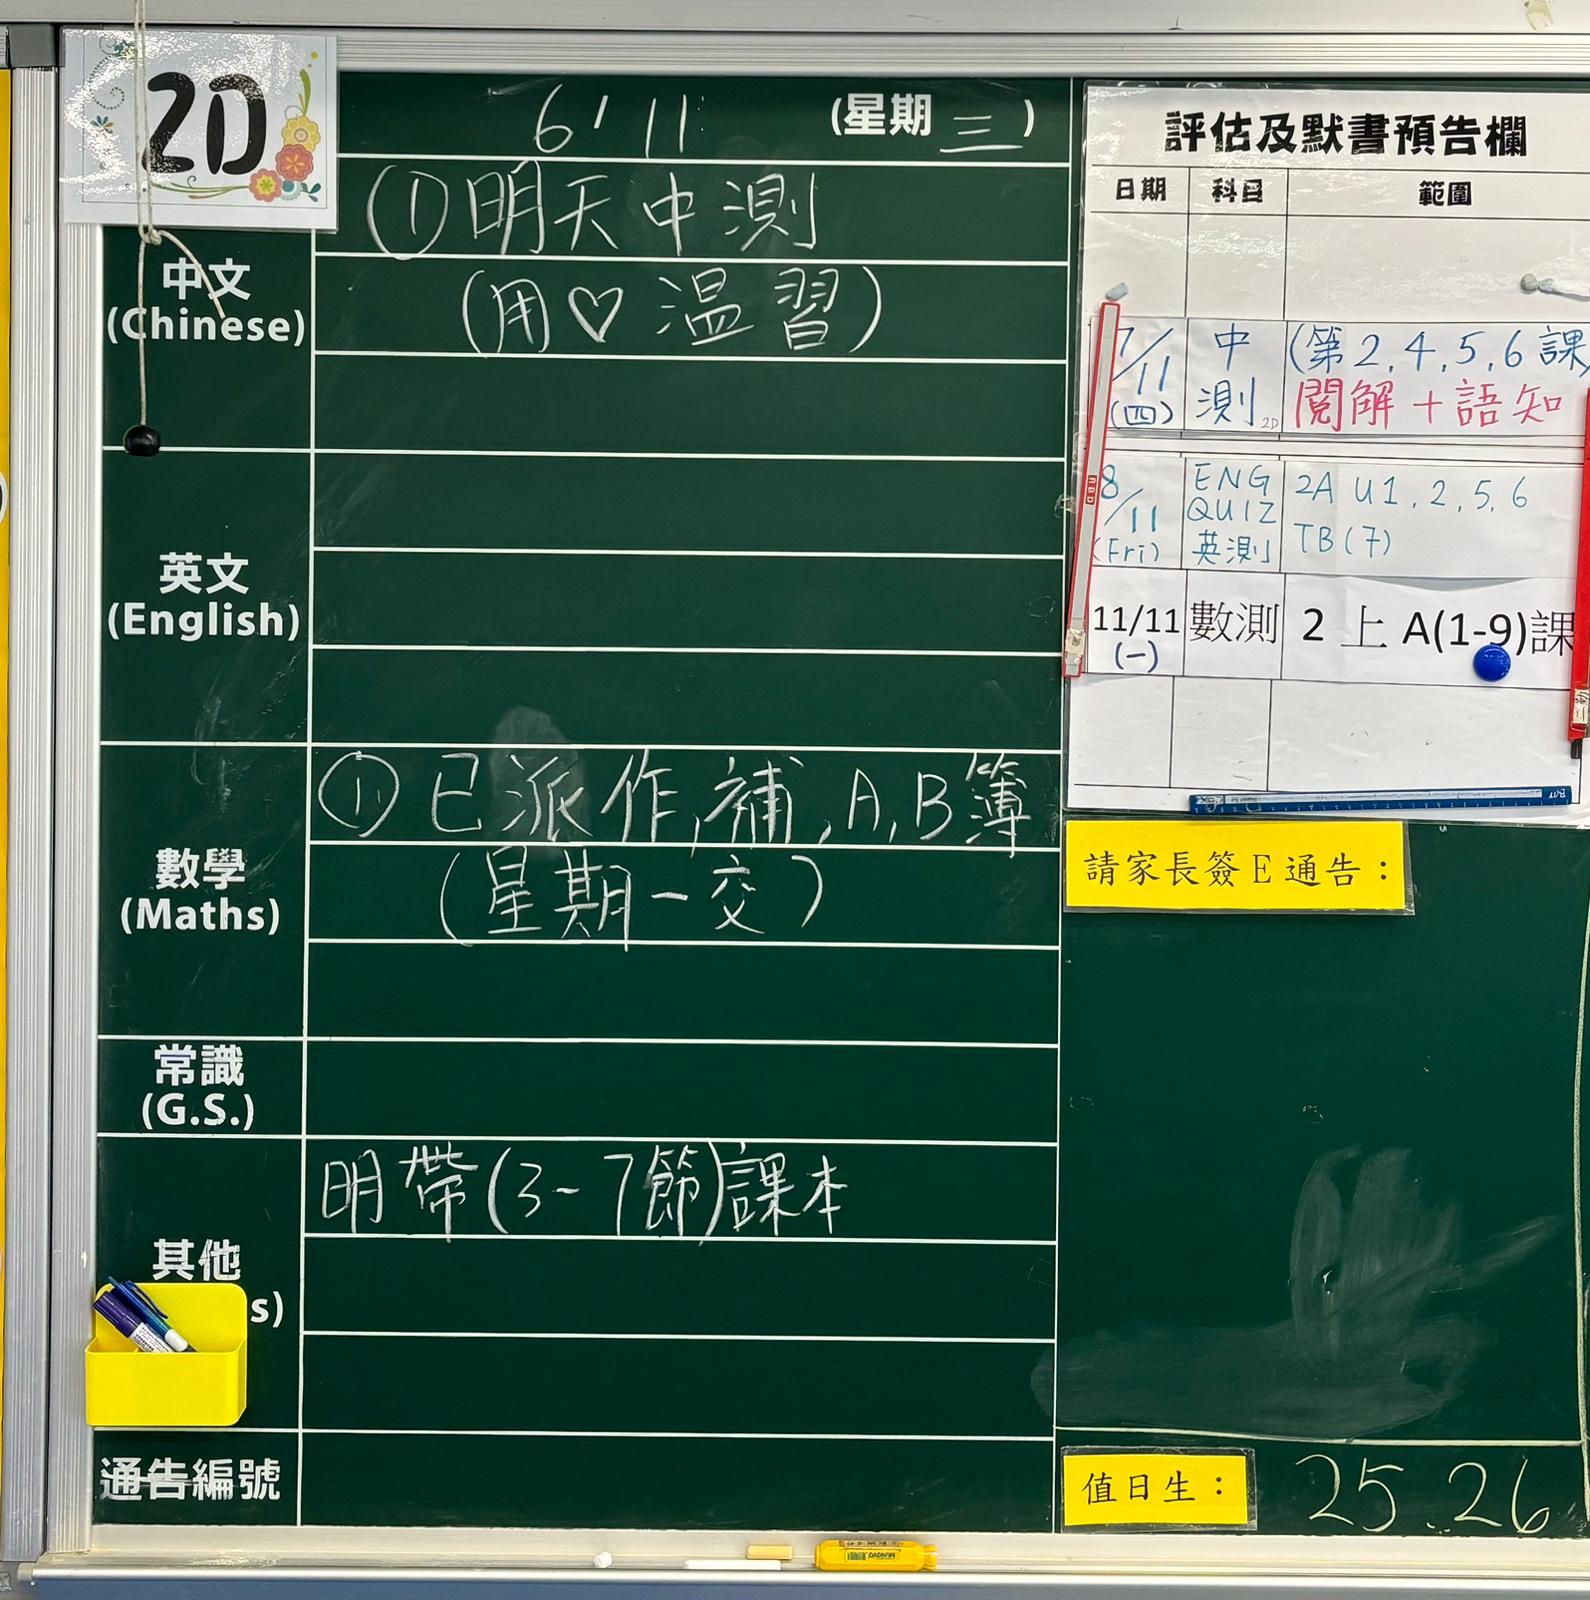 2D
6/11 (星期三)
中文
(Chinese)
① 明天中測
(用♡溫習)
英文
(English)
數學
(Maths)
① 已派作,補,A,B簿
(星期一交)
常識
(G.S.)
其他
s)
明帶(3-7節)課本
通告編號
評估及默書預告欄
日期 科目 範圍
7/11 (四) 中測 2D (第2,4,5,6課)
閱解+語知
8/11 (Fri) ENG QUIZ 英測 2A U1,2,5,6
TB(7)
11/11 (一) 數測 2上A(1-9)課
請家長簽E通告：
值日生： 25.26